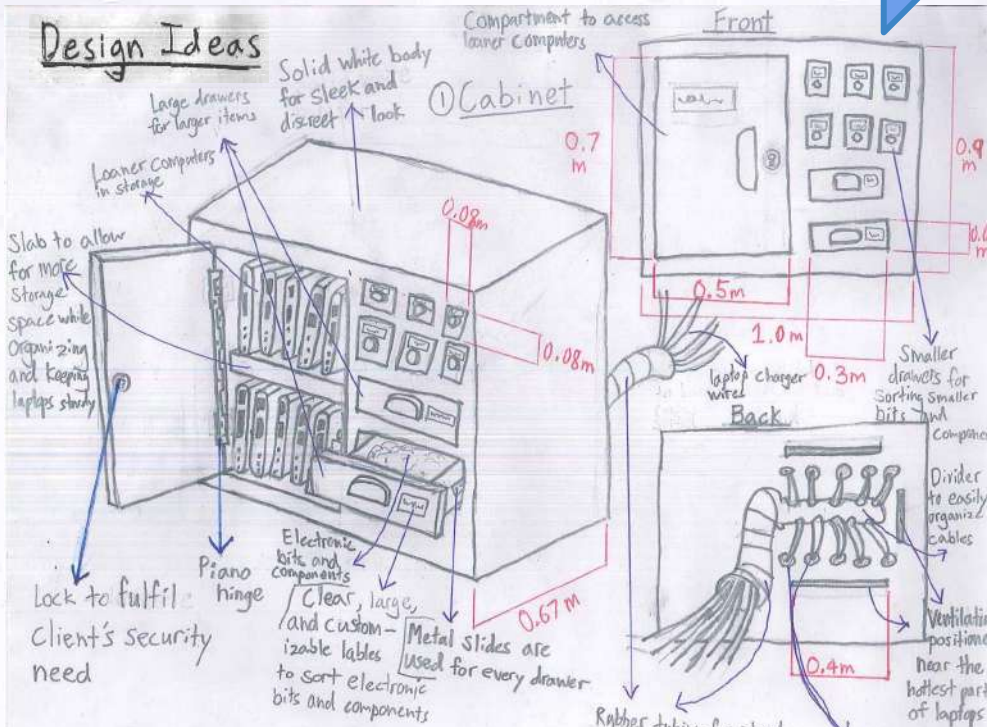 Design Ideas
Large drawers
for larger items
Solid white body
for sleek and
discreet look
① Cabinet
Loaner computers
in storage
Slab to allow
for more
storage
space while
organizing
and keeping
laptops sturdy
0.08m
0.08m
0.67m
Lock to fulfil
Client's security
need
Piano
hinge
Electronic
bits and
components
Clear, large,
and custom-
izable lables
to sort electronic
bits and components
Metal slides are
used for every drawer
Compartment to access
loaner computers
Front
0.7
m
0.9
m
0.5m
1.0m
0.3m
laptop charger
wires
Smaller
drawers for
sorting smaller
bits and
Back
Divider
to easily
organize
cables
positione
near the
hottest part
of laptops
0.4m
Rubber